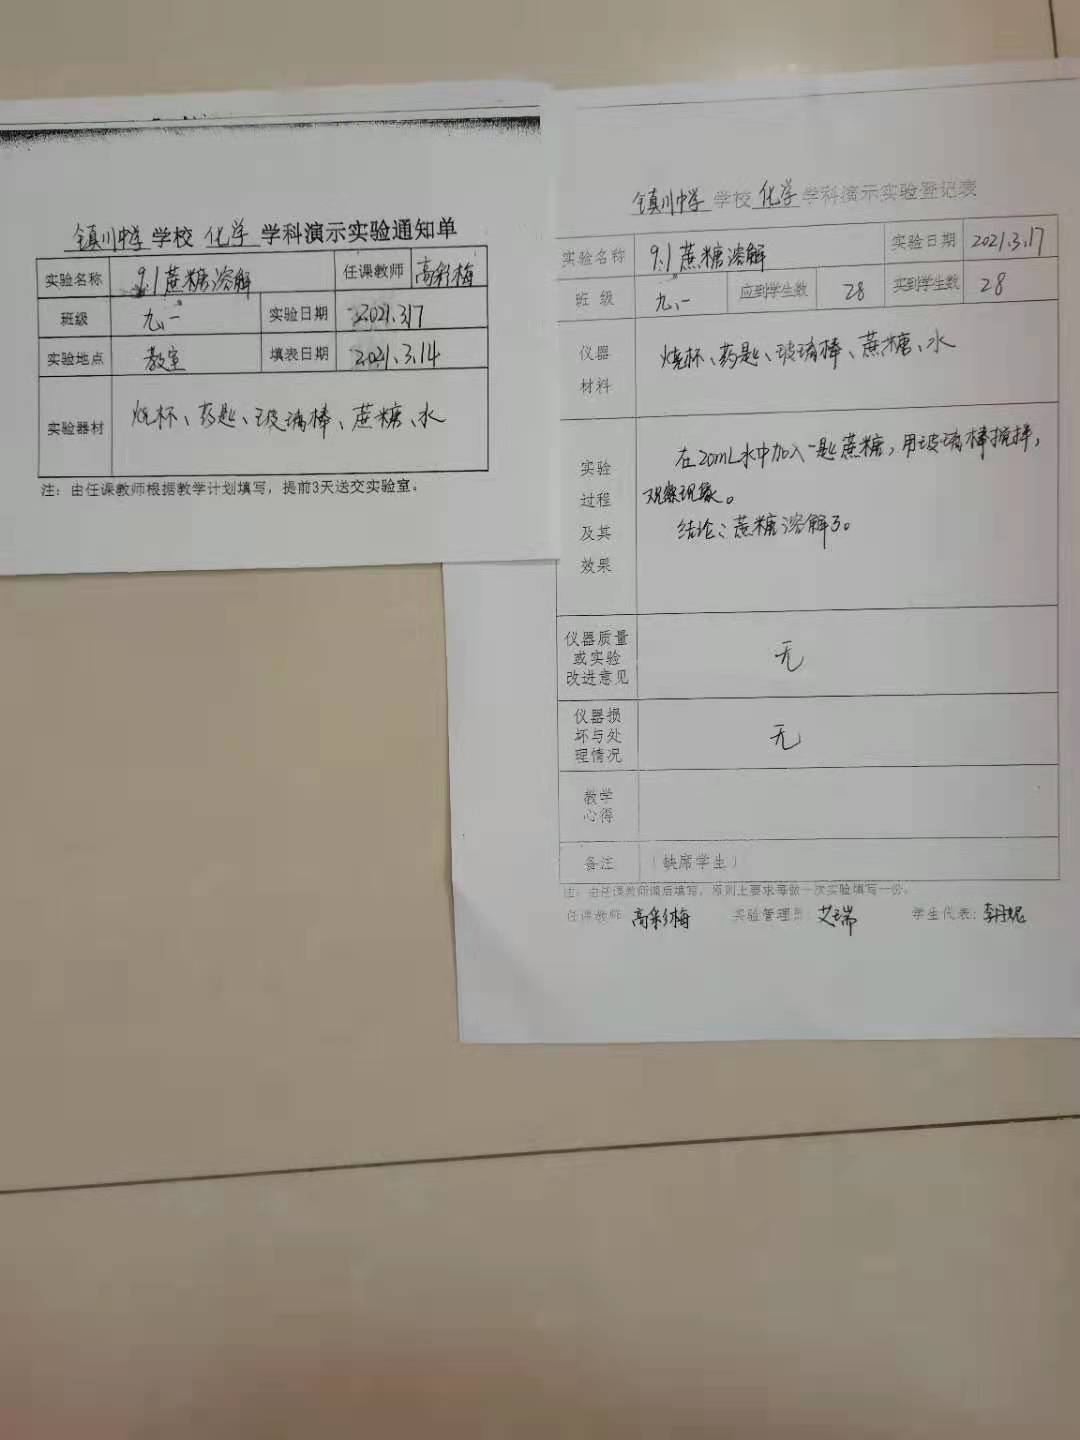 镇川中学 学校 化学 学科演示实验通知单
实验名称 9.1蔗糖溶解 任课教师 高彩梅
班级 九.一 实验日期 2021.3.17
实验地点 教室 填表日期 2021.3.14
实验器材 烧杯、药匙、玻璃棒、蔗糖、水
注：由任课教师根据教学计划填写，提前3天送交实验室。
镇川中学 学校 化学 学科演示实验登记表
实验名称 9.1蔗糖溶解 实验日期 2021.3.17
班 级 九.一 应到学生数 28 实到学生数 28
仪器 烧杯、药匙、玻璃棒、蔗糖、水
材料
实验 在20mL水中加入一匙蔗糖，用玻璃棒搅拌，
过程 观察现象。
及其 结论：蔗糖溶解了。
效果
仪器质量
或实验 无
改进意见
仪器损
坏与处 无
理情况
教学
心得
备注 （缺席学生）
注：由任课教师课后填写，原则上要求每做一次实验填写一份。
任课教师：高彩梅 实验管理员：艾瑞 学生代表：